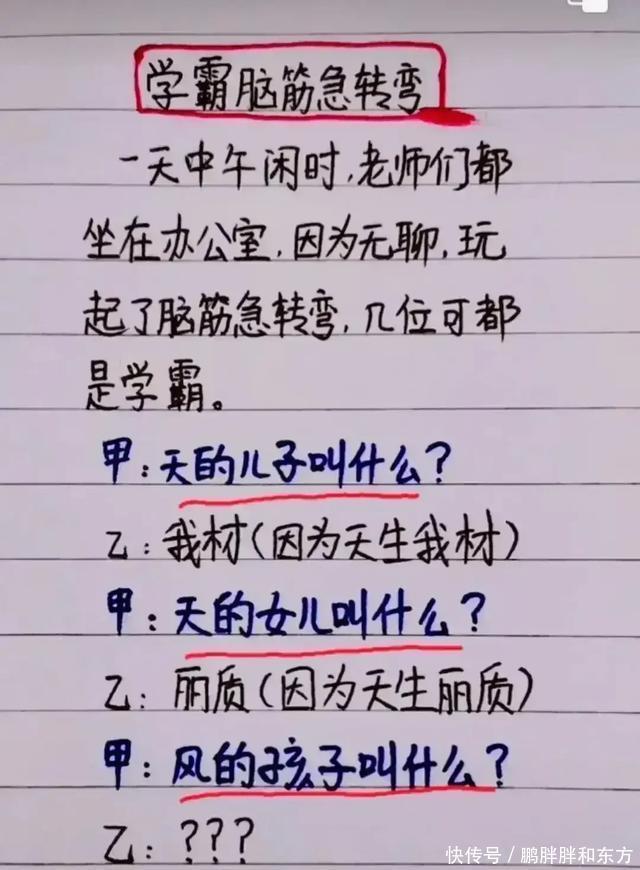 学霸脑筋急转弯
一天中午闲时,老师们都
坐在办公室,因为无聊,玩
起了脑筋急转弯,几位可都
是学霸。
甲:天的儿子叫什么?
乙:我材(因为天生我材)
甲:天的女儿叫什么?
乙:丽质(因为天生丽质)
甲:风的孩子叫什么?
乙:???
快传号/鹏胖胖和东方